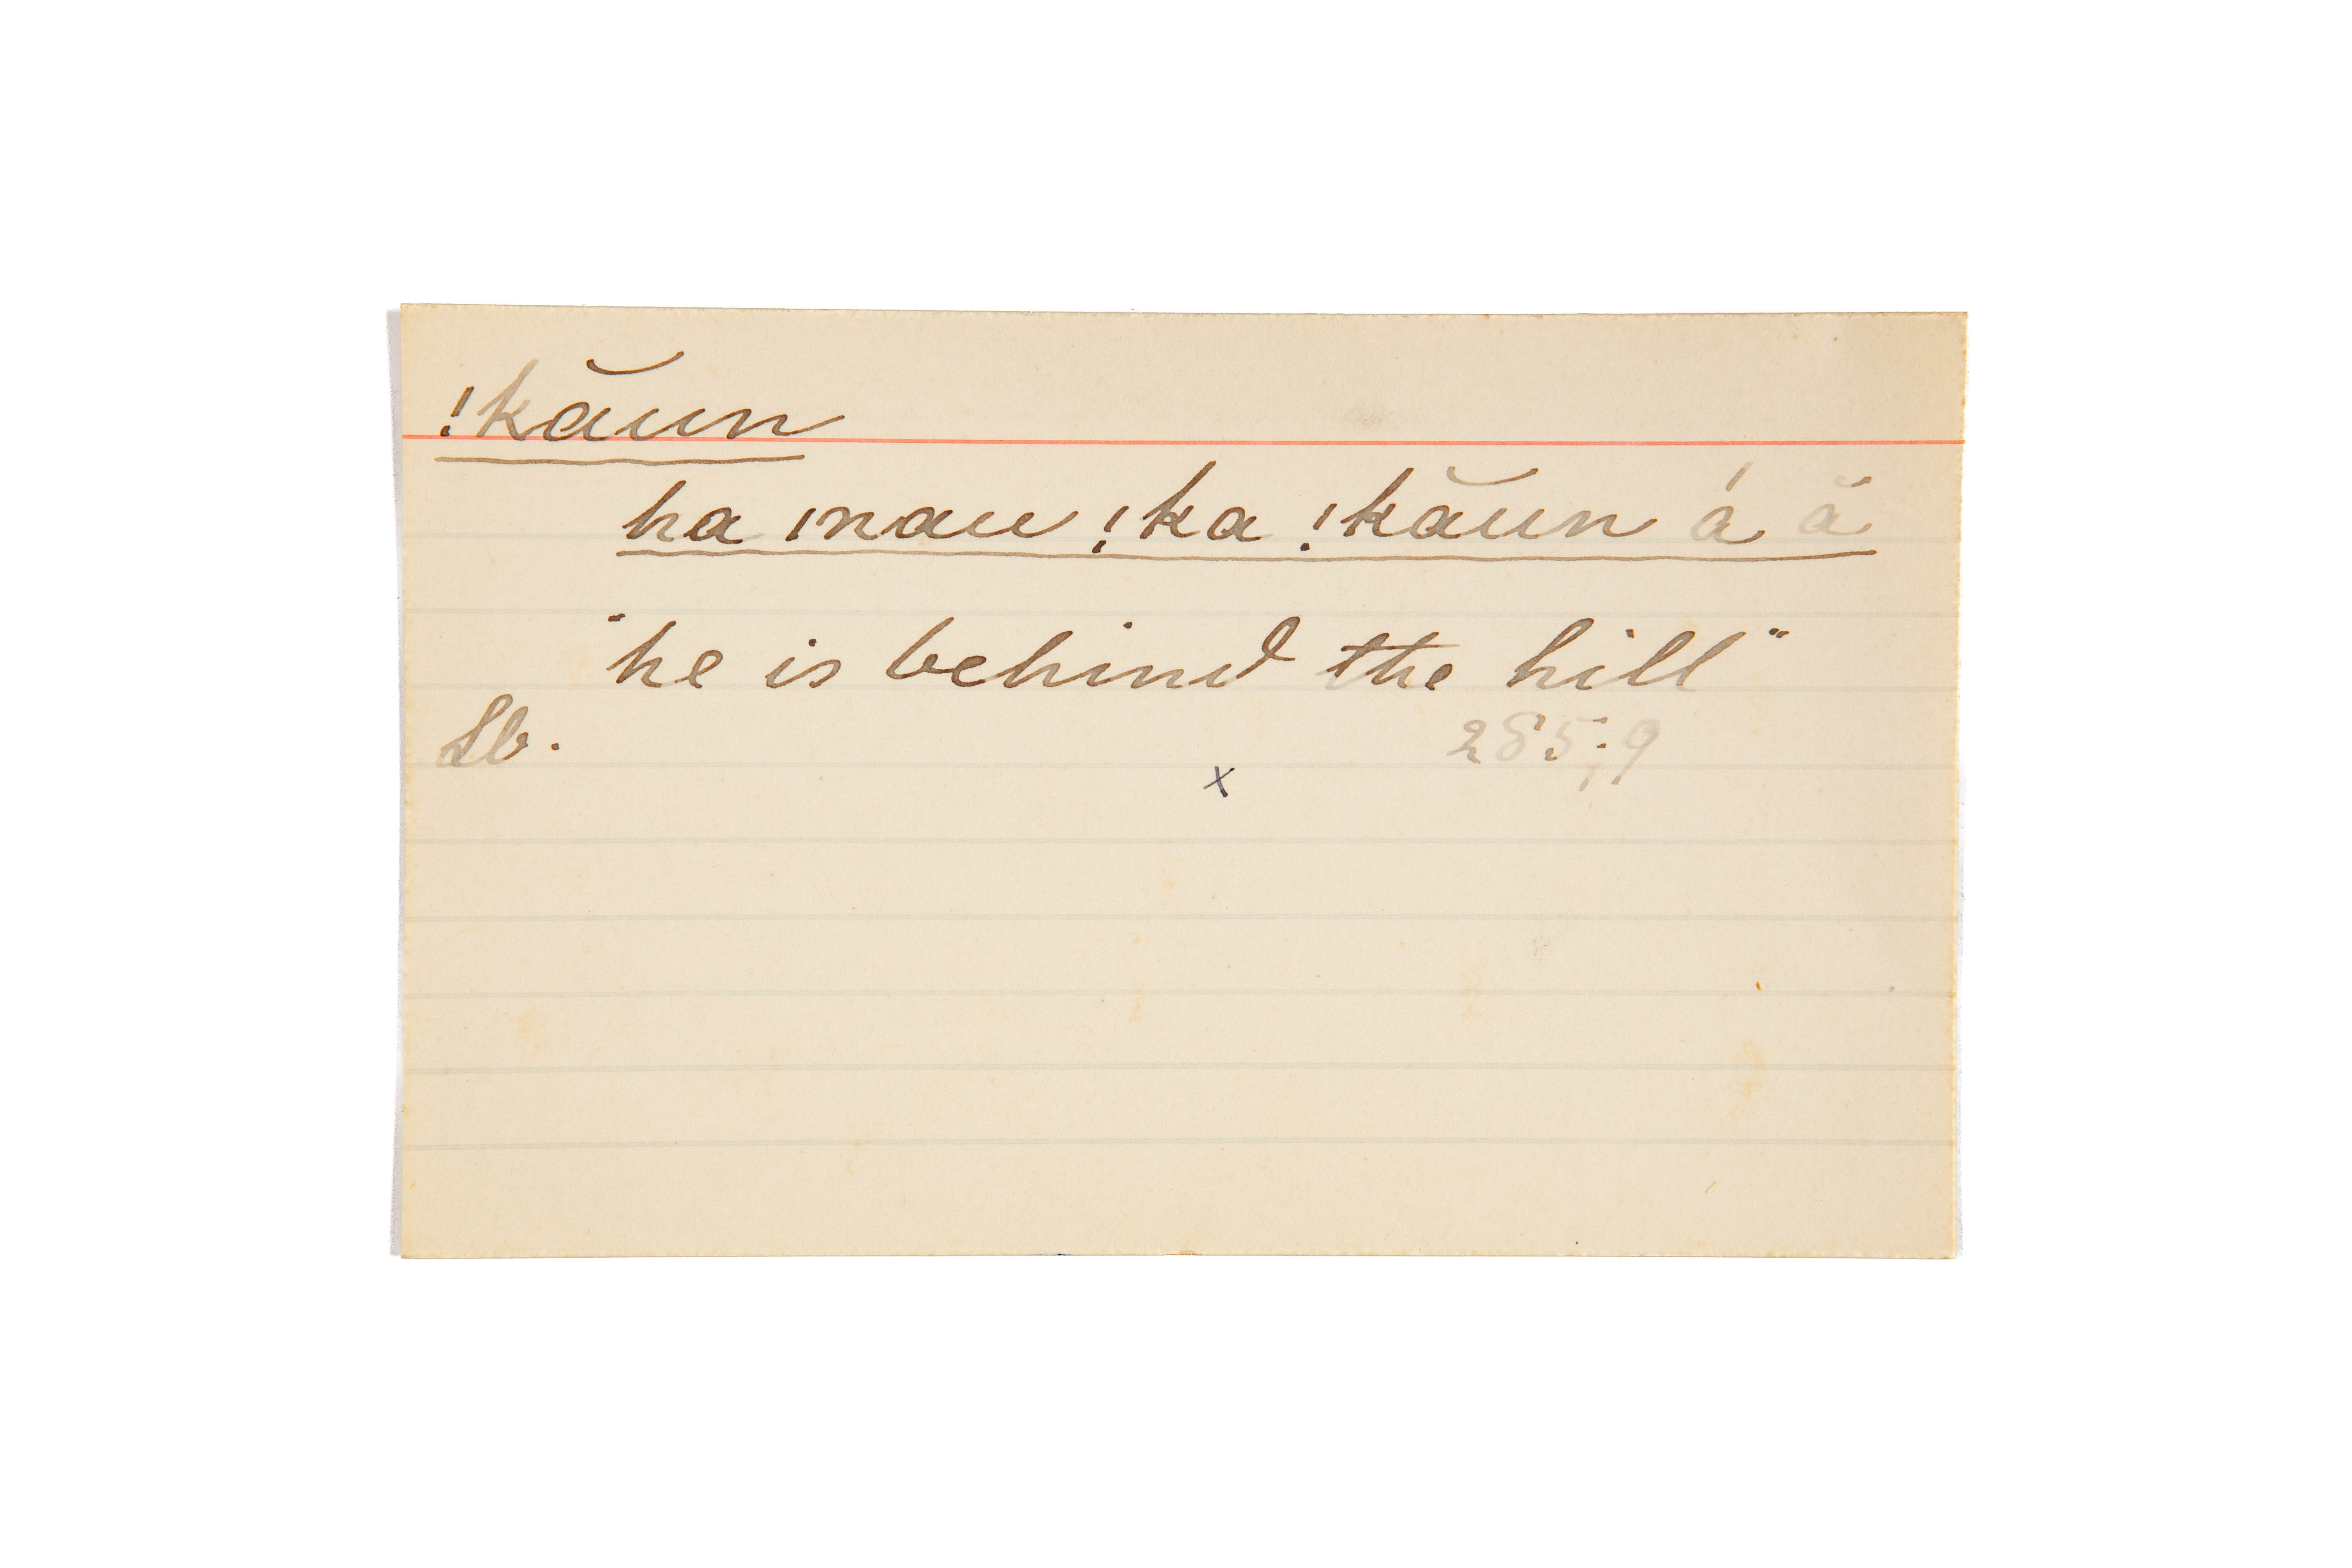 !kăun
ha ınau !ka !kăun á ă
"he is behind the hill"
Lb. 285;9
x